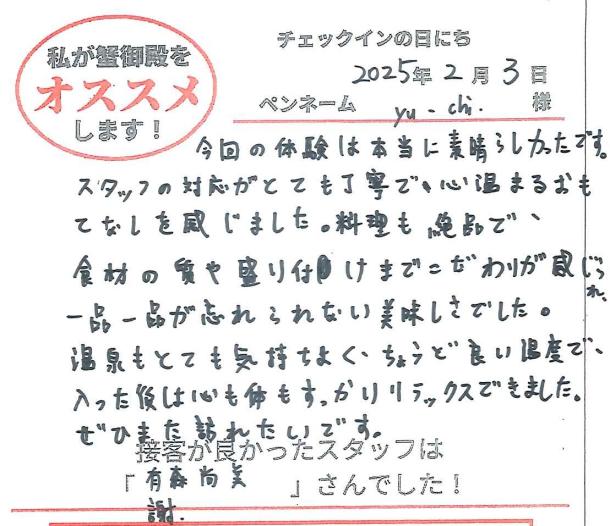 私が蟹御殿を
オススメ
します!
チェックインの日にち
2025年 2月 3日
ペンネーム yu-chi. 様
今回の体験は本当に素晴らしかったです。
スタッフの対応がとても丁寧で、心温まるおも
てなしを感じました。料理も絶品で、
食材の質や盛り付けまでこだわりが感じられ、
一品一品が忘れられない美味しさでした。
温泉もとても気持ちよく、ちょうど良い温度で、
入った後は心も体もすっかりリラックスできました。
ぜひまた訪れたいです。
接客が良かったスタッフは
「有森尚美」さんでした!
謝.